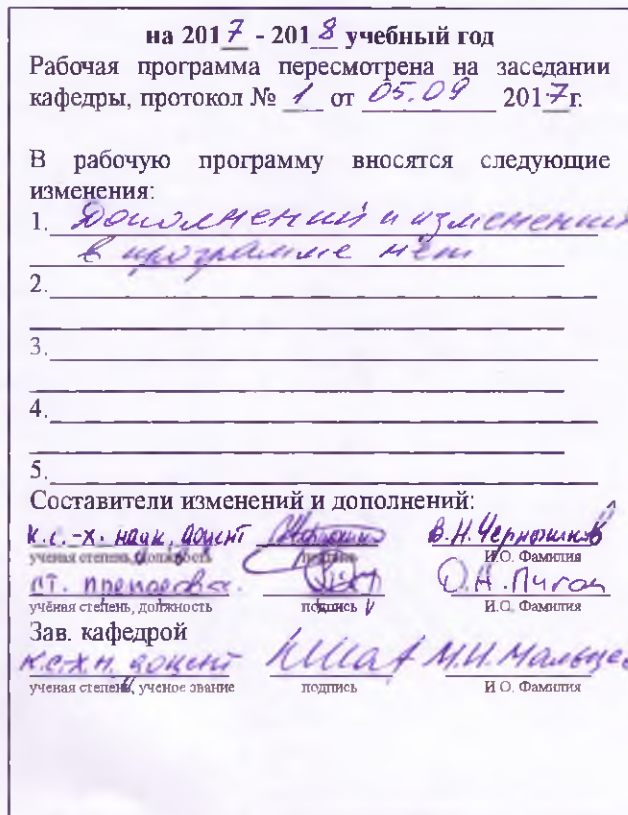 на 2017 - 2018 учебный год
Рабочая программа пересмотрена на заседании
кафедры, протокол № 1 от 05.09 2017г.
В рабочую программу вносятся следующие
изменения:
1. Дополнений и изменений
в программе нет
2.
3.
4.
5.
Составители изменений и дополнений:
к.с.-х. наук, доцент В.Н. Чернышков
ученая степень, должность подпись И.О. Фамилия
ст. преподав. О.Н.
учёная степень, должность подпись И.О. Фамилия
Зав. кафедрой
к.с.-х.н. доцент М.И. Мальцев
ученая степень, ученое звание подпись И.О. Фамилия